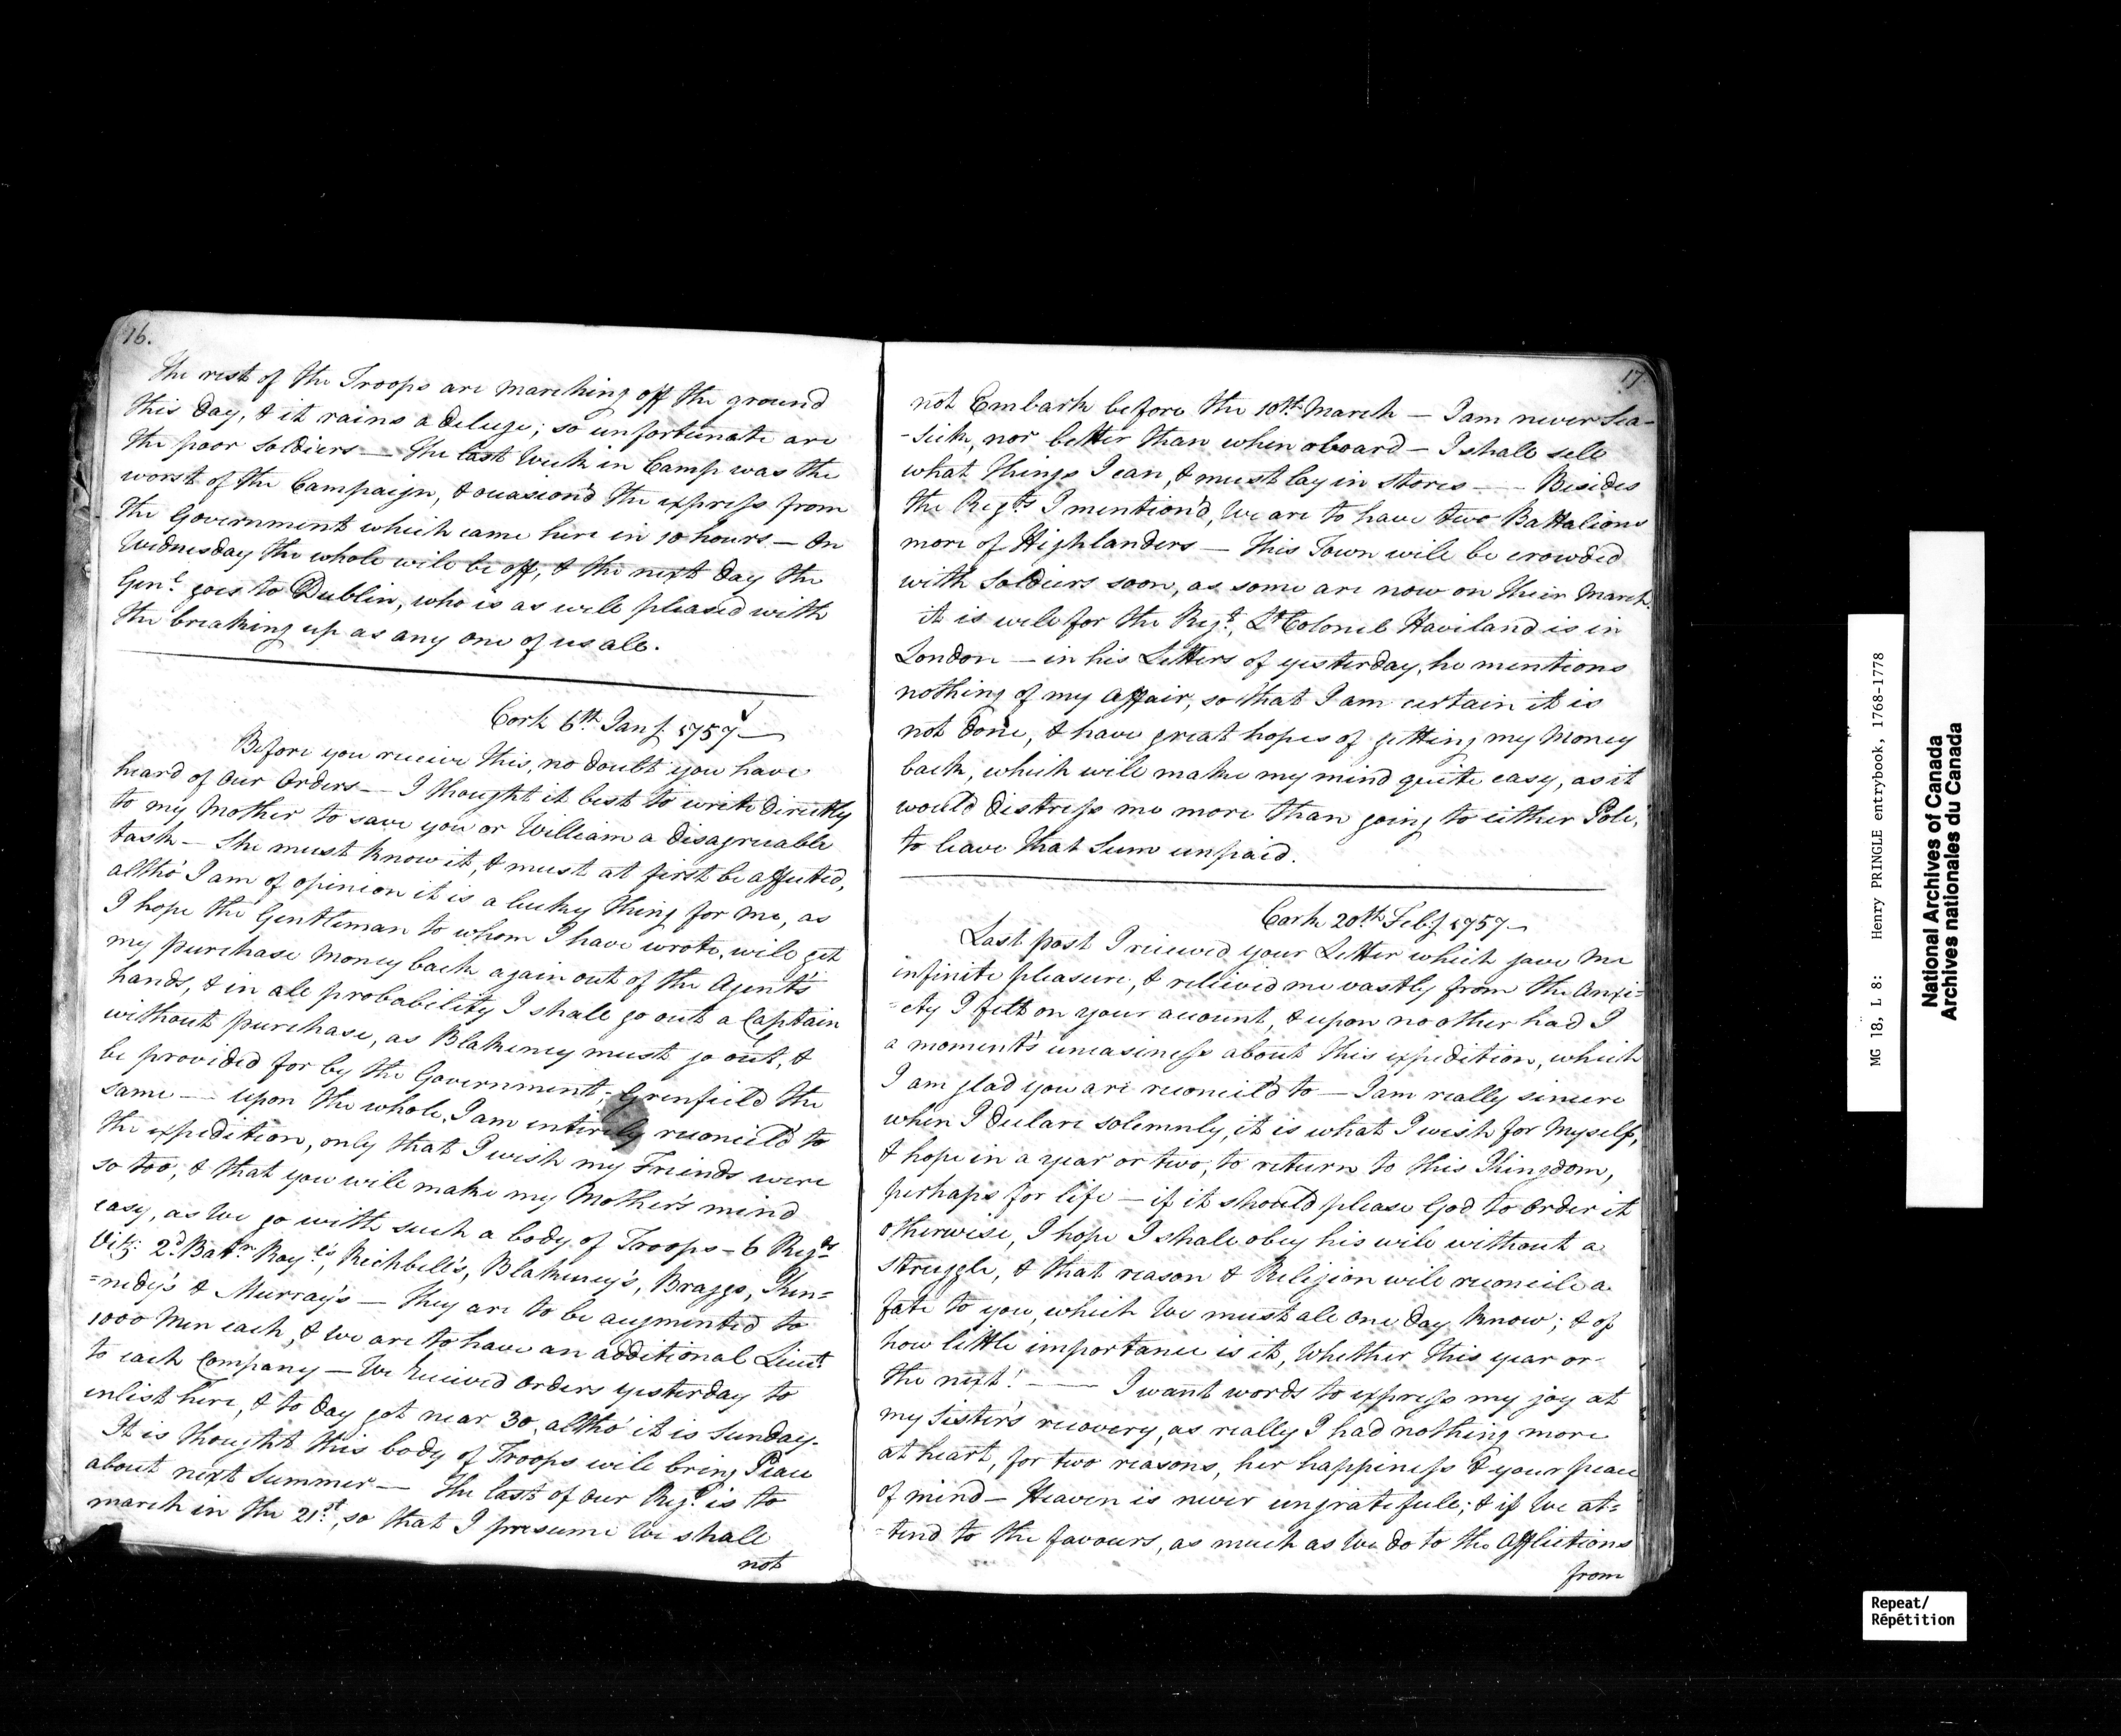 16.
The rest of the Troops are marching off the ground
this day, & it rains a deluge; so unfortunate are
the poor soldiers — The last Week in Camp was the
worst of the Campaign, & occasion'd the express from
the Government which came here in 10 hours — On
Wednesday the whole will be off, & the next day the
Genl. goes to Dublin, who is as well pleased with
the breaking up as any one of us all.
Cork 6th. Jany. 1757 —
Before you receive this, no doubt you have
heard of our Orders — I thought it best to write directly
to my Mother to save you or William a disagreeable
task — She must know it, & must at first be affected,
altho' I am of opinion it is a lucky thing for me, as
I hope the Gentleman to whom I have wrote, will get
my purchase Money back again out of the Agent's
hands, & in all probability I shall go out a Captain
without purchase, as Blakeney must go out, &
be provided for by the Government; Grenfield the
same — upon the whole, I am entirely reconcil'd to
the expedition, only that I wish my Friends were
so too, & that you will make my Mother's mind
easy, as We go with such a body of Troops – 6 Regts.
Vizt: 2d. Batn. Royl's, Richbell's, Blakeney's, Braggs, Ken=
=nedy's & Murray's — They are to be augmented to
1000 Men each, & we are to have an additional Lieut.
to each Company — We Received Orders yesterday to
enlist here, & to day got near 30, altho' it is Sunday.
It is thought this body of Troops will bring Peace
about next Summer — The last of our Regt. is to
march in the 21st., so that I presume We shall
not
17.
not Embark before the 10th. March — I am never Sea-
-sick, nor better than when aboard — I shall sell
what things I can, & must lay in stores — — Besides
the Regts. I mention'd, We are to have two Battalions
more of Highlanders — This Town will be crowded
with soldiers soon, as some are now on their March.
it is well for the Regt., Lt Colonel Haviland is in
London — in his Letters of yesterday, he mentions
nothing of my affair, so that I am certain it is
not done, & have great hopes of getting my Money
back, which will make my mind quite easy, as it
would distress me more than going to either Pole,
to leave that Sum unpaid.
Cork 20th. Feby. 1757 —
Last post I received your Letter which gave me
infinite pleasure, & relieved me vastly from the Anxi=
=ety I felt on your account, & upon no other had I
a moment's uneasiness about this expedition, which
I am glad you are reconcil'd to — I am really sincere
when I declare solemnly, it is what I wish for Myself,
& hope in a year or two, to return to this Kingdom,
perhaps for life — if it should please God to order it
otherwise, I hope I shall obey his will without a
struggle, & that reason & Religion will reconcile a
fate to you, which We must all one day know; & of
how little importance is it, whether this year or
the next! — — I want words to express my joy at
my Sister's recovery, as really I had nothing more
at heart, for two reasons, her happiness & your peace
of mind — Heaven is never ungratefull; & if We at=
=tend to the favours, as much as We do to the Afflictions
from
MG 18, L 8: Henry PRINGLE entrybook, 1768-1778
National Archives of Canada
Archives nationales du Canada
Repeat/
Répétition